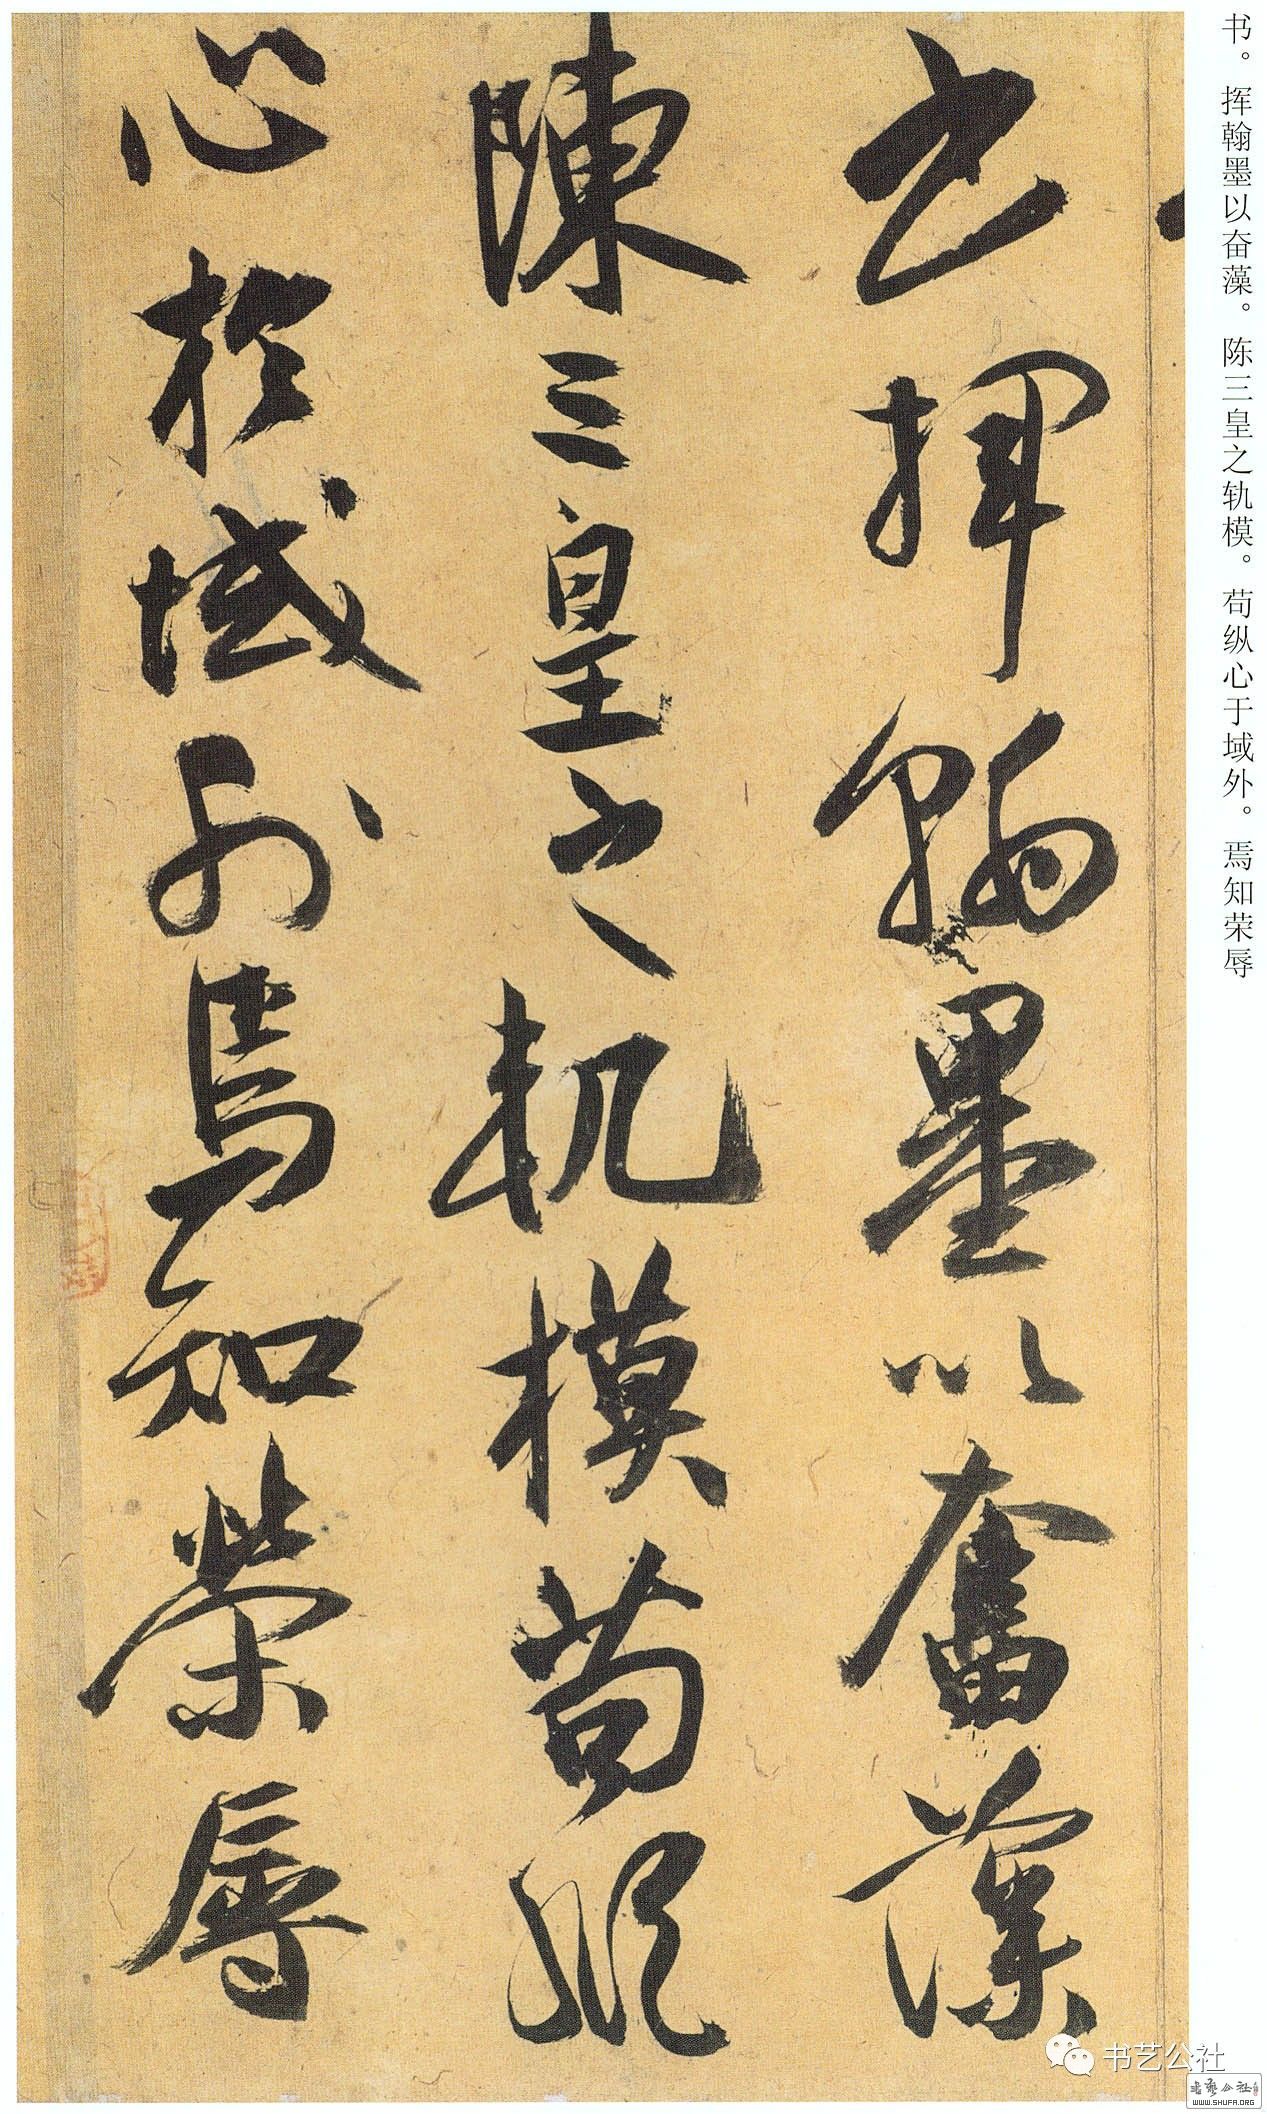 书。挥翰墨以奋藻。陈三皇之轨模。苟纵心于域外。焉知荣辱
書揮翰墨以奮藻
陳三皇之軌模苟縱
心於域外焉知榮辱
书艺公社
书艺公社
WWW.SHUFA.ORG